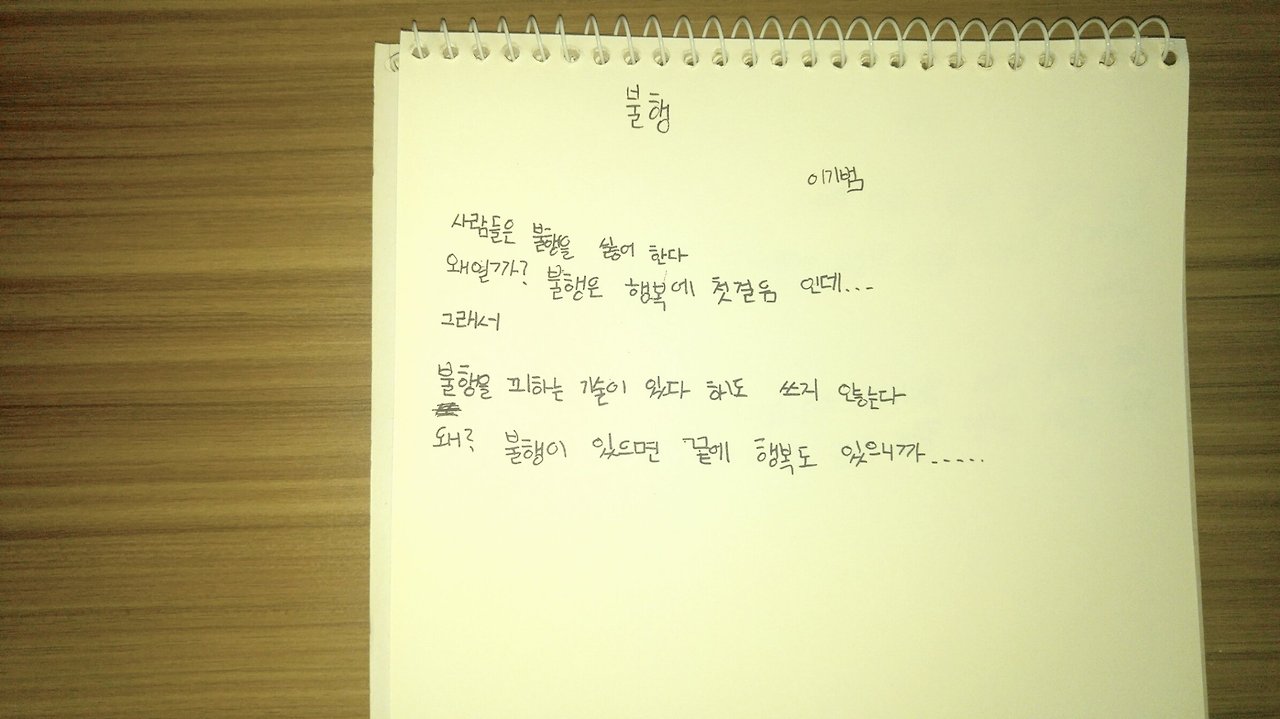 불행
이기범
사람들은 불행을 싫어 한다
왜일까? 불행은 행복에 첫걸음 인데...
그래서
불행을 피하는 기술이 있다 해도 쓰지 안는다
왜? 불행이 있으면 끝에 행복도 있으니까.....